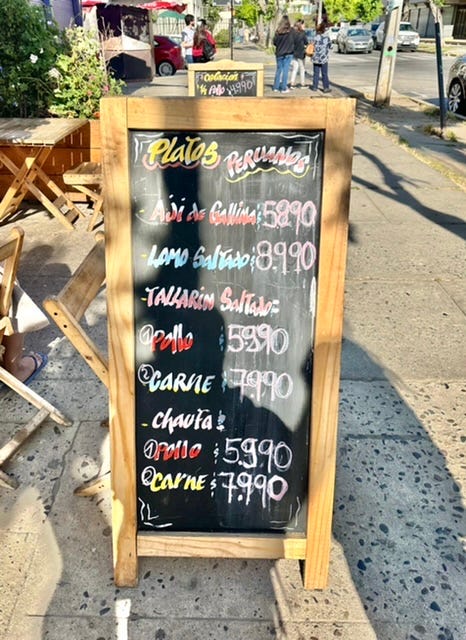 Colación
¼ Pollo $4990
Platos Peruanos
- Aji de Gallina: $5890
- Lomo Saltado: $8.990
- Tallarin Saltado:
① Pollo $5.990
② Carne $7.990
- Chaufa:
① Pollo $5.990
② Carne $7.990